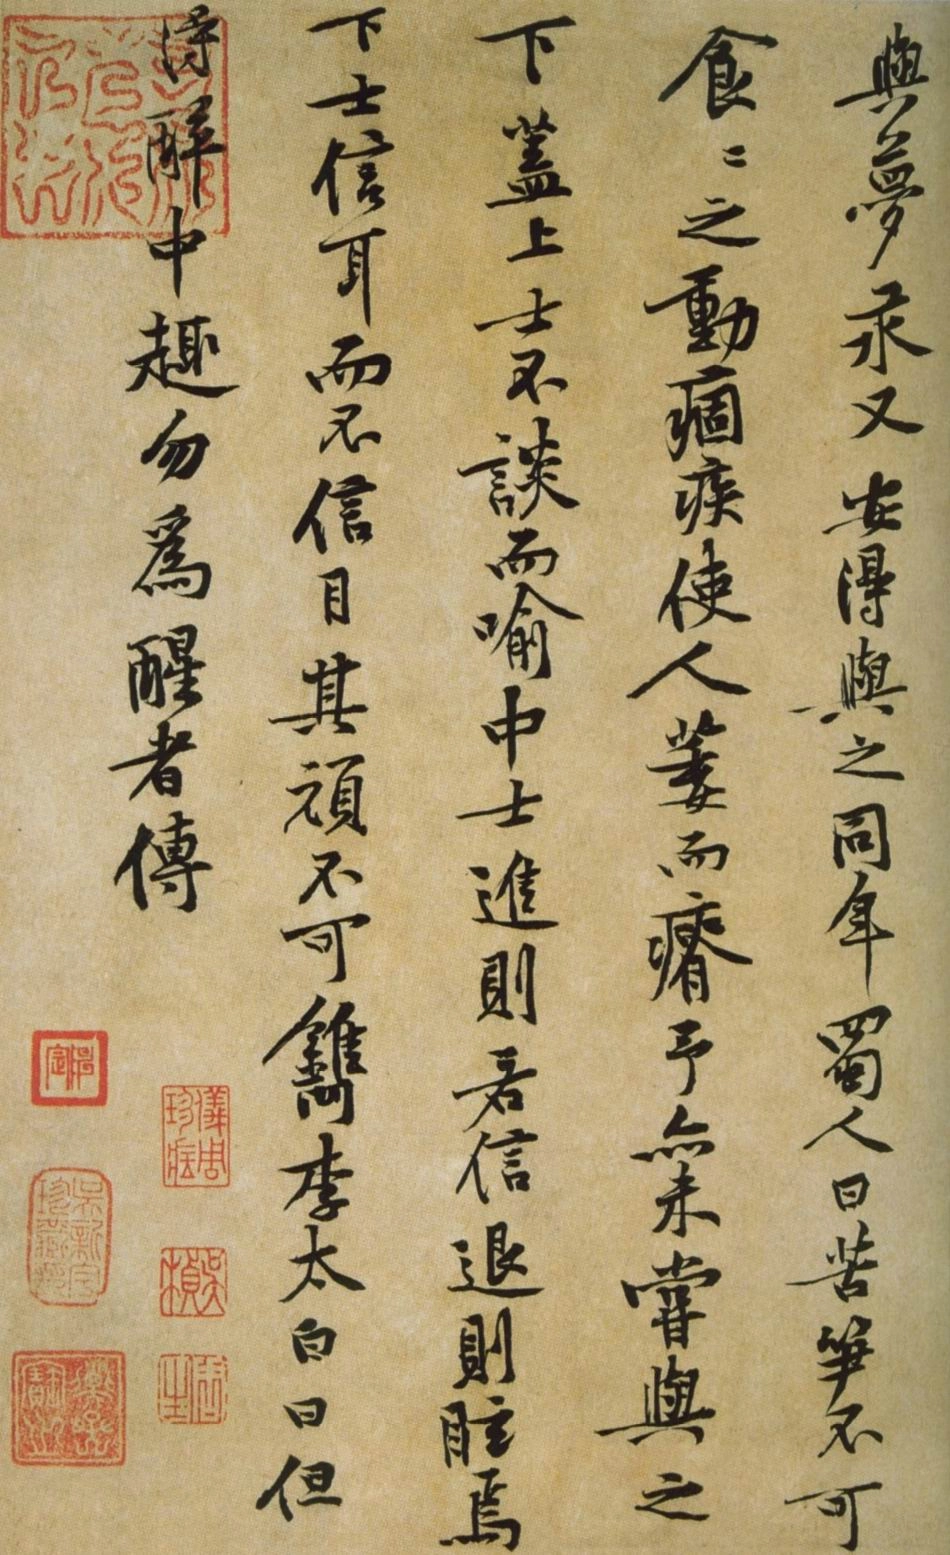 與夢汞又安得與之同年蜀人曰苦笋不可
食〻之動痼疾使人萎而瘠予亦未嘗與之
下蓋上士不談而喻中士進則若信退則眩焉
下士信耳而不信目其頑不可鐫李太白曰但
得醉中趣勿為醒者傳
儀周珍藏
吳楨
吳新宇珍藏印